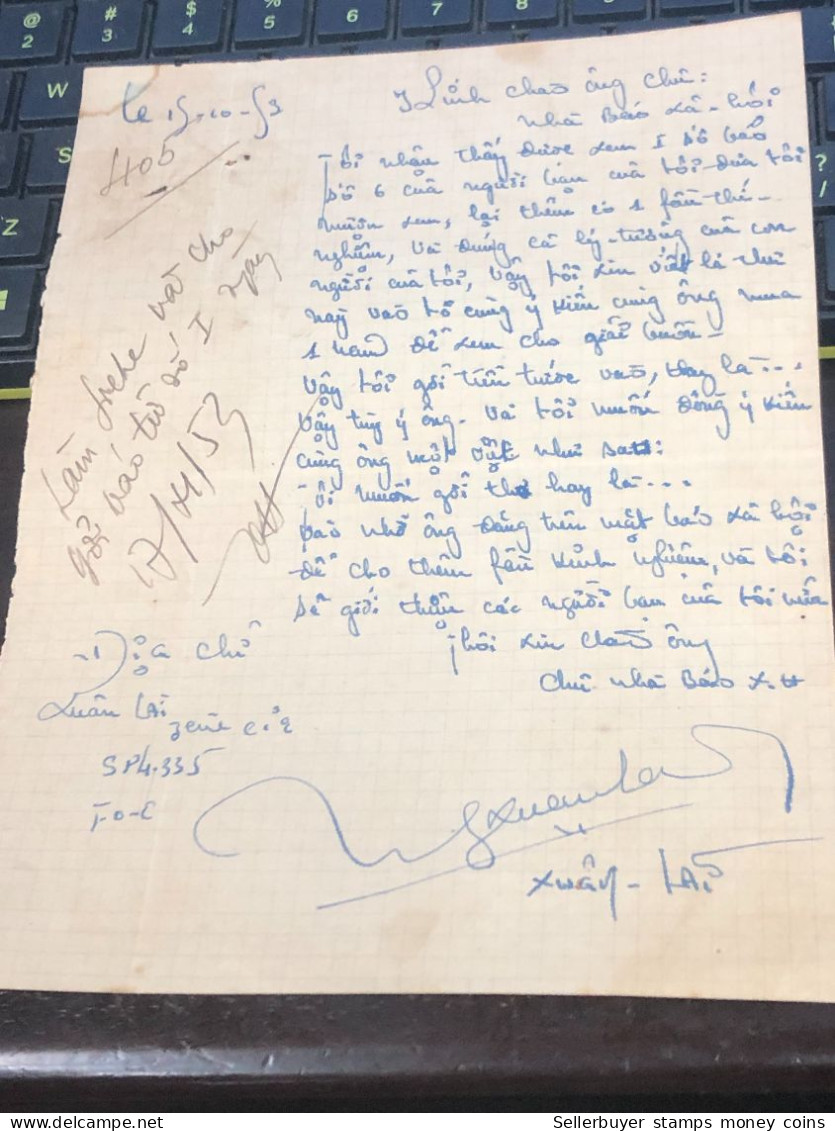 le 15-10-53
405
Kính chào ông chủ:
nhà Báo Xã-hội
Tôi nhận thấy được xem 1 số báo
số 6 của người bạn của tôi đưa tôi
muốn xem, lại thêm có 1 fần thí-
nghiệm, và đúng cả lý-tưởng của con
người của tôi, vậy tôi xin viết lá thư
này vào tỏ cùng ý kiến cùng ông mua
1 năm để xem cho giải buồn-
vậy tôi gởi tiền trước vào, hay là...
vậy tùy ý ông. và tôi muốn đồng ý kiến
cùng ông một việc như sau:
Tôi muốn gởi thơ hay là...
vào nhờ ông đăng trên mặt báo xã hội
để cho thêm fần kinh nghiệm, và tôi
sẽ giới thiệu các người bạn của tôi nữa
Thôi xin chào ông
chủ nhà Báo X.H
Làm fiche và cho
gởi báo từ số 1 ngày
Địa chỉ
Xuân Lai
SP4.335
Xuân-Lai
Sellerbuyer stamps money coins
@ 2
# 3
$ 4
5
6
7
8
W
S
Z